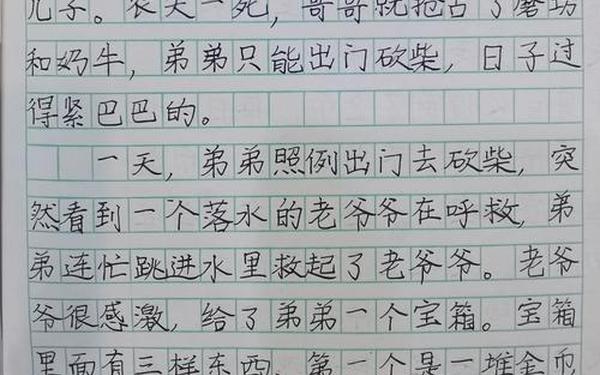 儿子。农夫一死，哥哥就抢占了磨坊
和奶牛，弟弟只能出门砍柴，日子过
得紧巴巴的。
一天，弟弟照例出门去砍柴，突
然看到一个落水的老爷爷在呼救，弟
弟连忙跳进水里救起了老爷爷。老爷
爷很感激，给了弟弟一个宝箱。宝箱
里面有三样东西，第一个是一堆金币